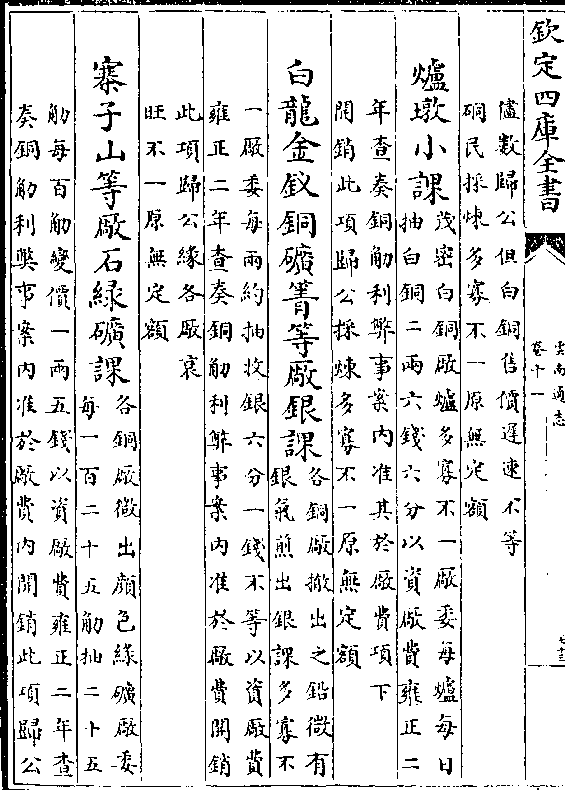 欽定四庫全書
雲南通志
卷十一
儘數歸公但白銅售價遲速不等
硐民採煉多寡不一原無定額
爐墩小課
茂密白銅厰爐多寡不一厰委每爐每日
抽白銅二兩六錢六分以資厰費雍正二
年查奏銅觔利弊事案内准其於厰費項下
開銷此項歸公採煉多寡不一原無定額
白龍金釵銅礦箐等厰銀課
各銅厰撤出之鉛微有
銀氣煎出銀課多寡不
一厰委每兩約抽收銀六分一錢不等以資厰費
雍正二年查奏銅觔利弊事案内准於厰費開銷
此項歸公緣各厰衰
旺不一原無定額
寨子山等厰石綠礦課
各銅厰撤出顔色綠礦厰委
每一百二十五觔抽二十五
觔每百觔變價一兩五錢以資厰費雍正二年查
奏銅觔利弊事案内准於厰費内開銷此項歸公